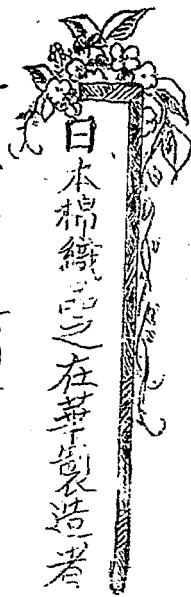 日本棉織品之在華製造者